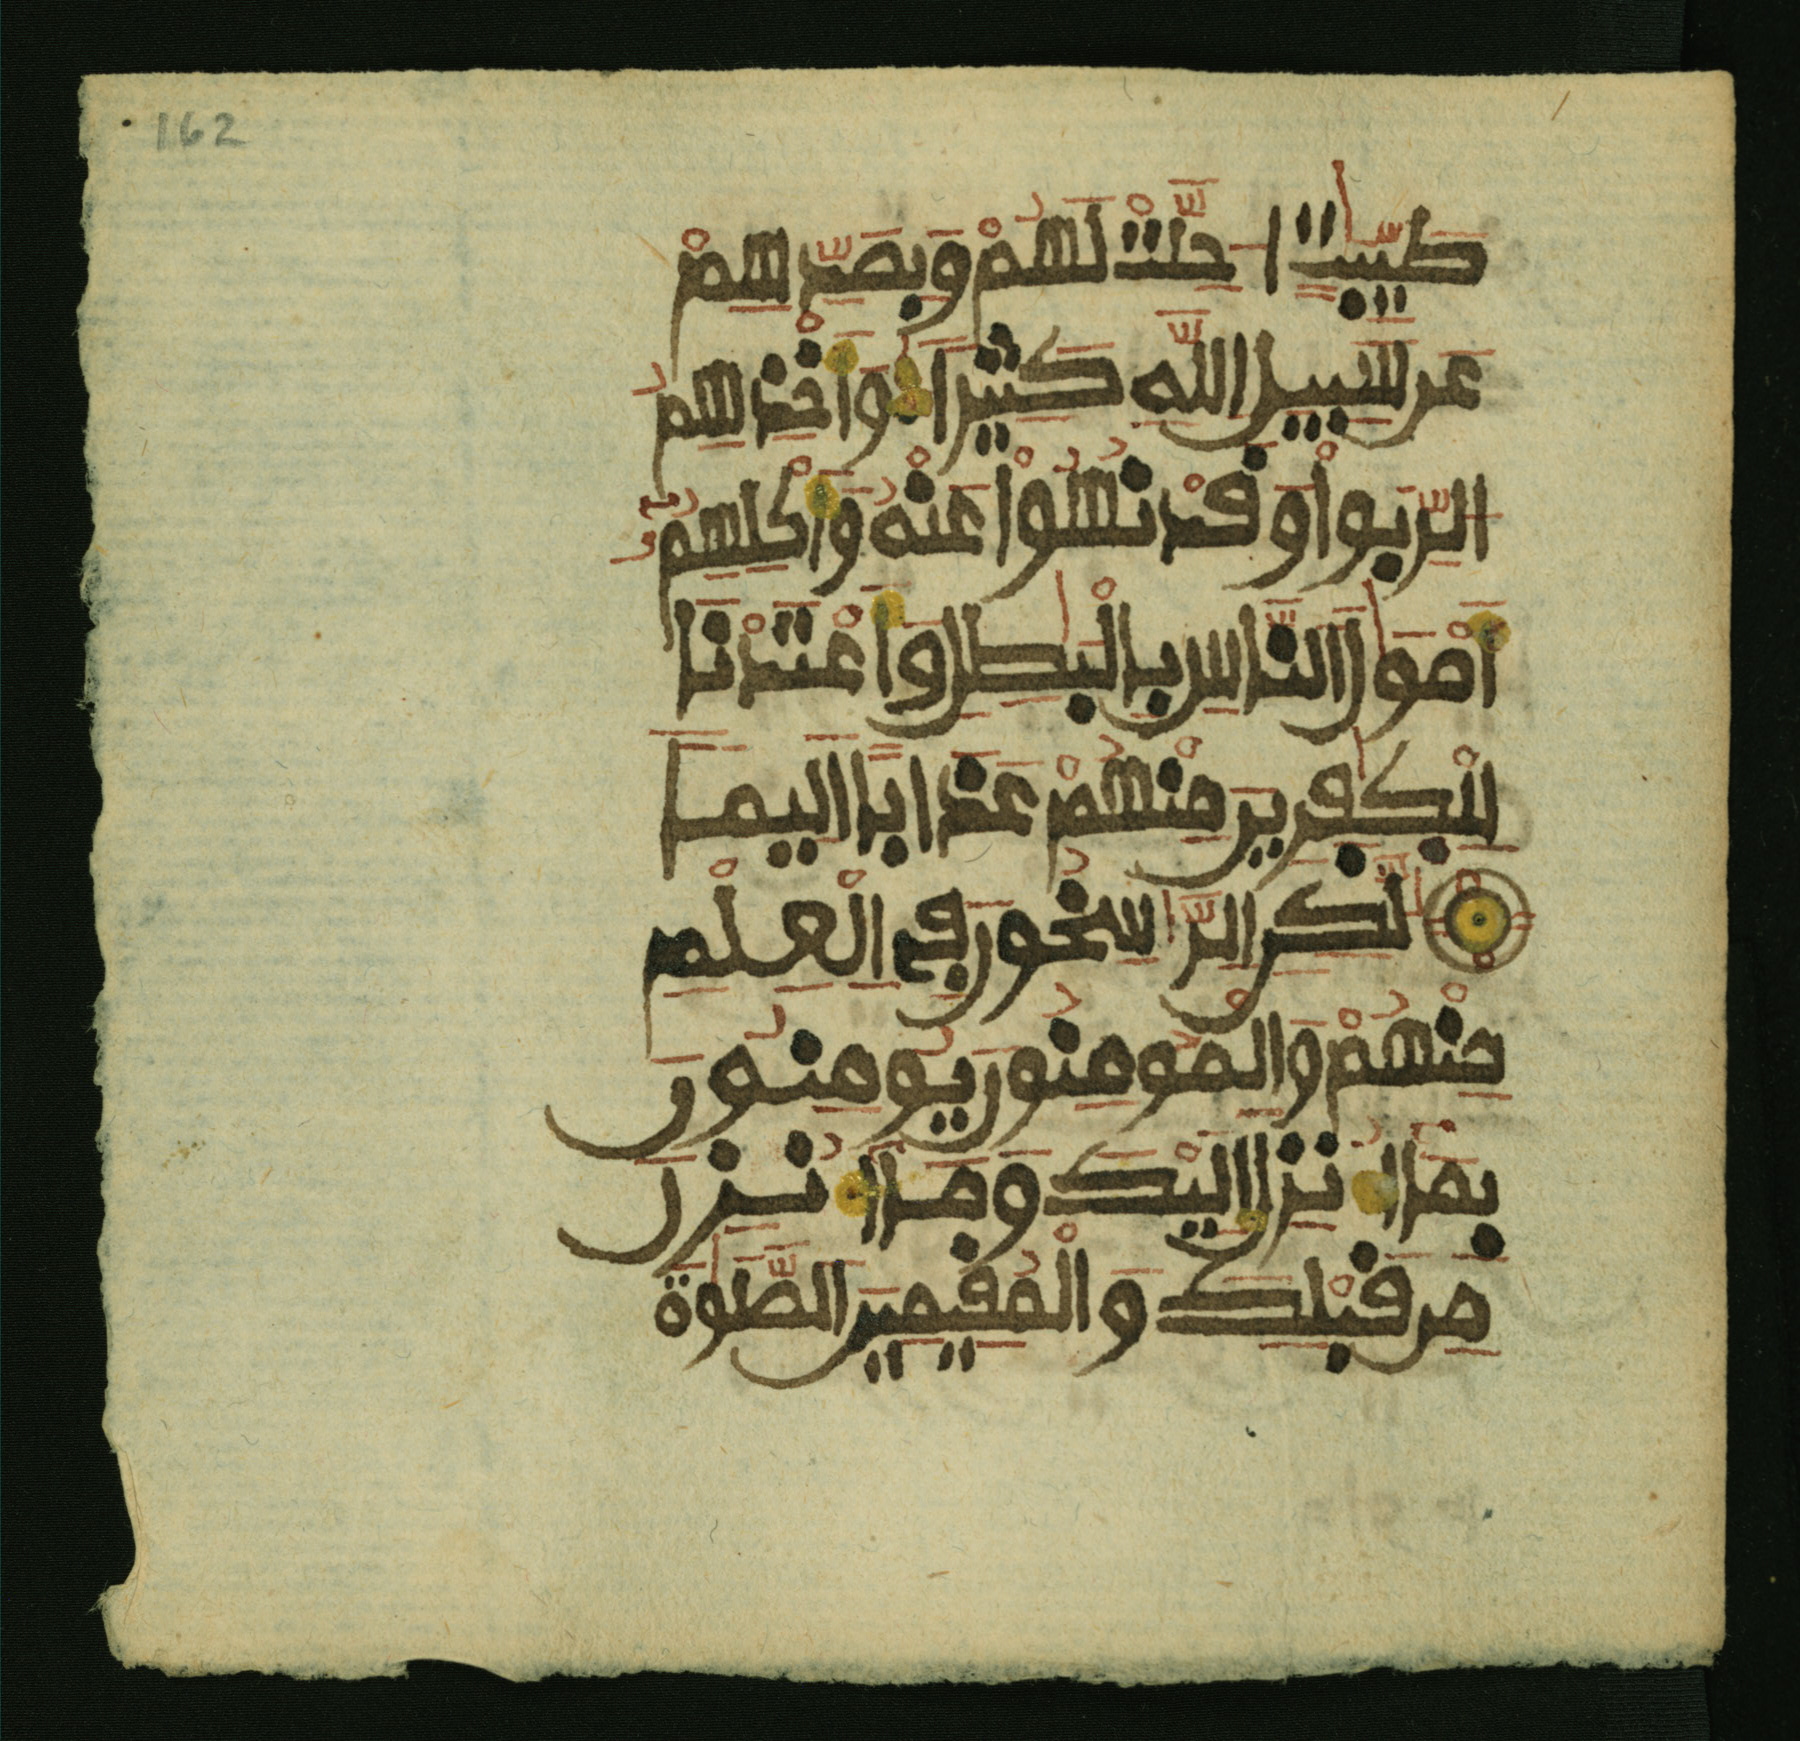 162
طَيِّبَٰتٍ احِلَّتْ لَهُمْ وَبِصَدِّهِمْ
عَن سَبِيلِ اللَّهِ كَثِيرًا وَأَخْذِهِمُ
الرِّبَوٰا وَقَدْ نُهُوا عَنْهُ وَأَكْلِهِمُ
أَمْوَٰلَ النَّاسِ بِالْبَٰطِلِ وَأَعْتَدْنَا
لِلْكَٰفِرِينَ مِنْهُمْ عَذَابًا اَلِيمًا
لَّٰكِنِ الرَّٰسِخُونَ فِي الْعِلْمِ
مِنْهُمْ وَالْمُومِنُونَ يُومِنُونَ
بِمَا أُنزِلَ إِلَيْكَ وَمَا أُنزِلَ
مِن قَبْلِكَ وَالْمُقِيمِينَ الصَّلَوٰةَ